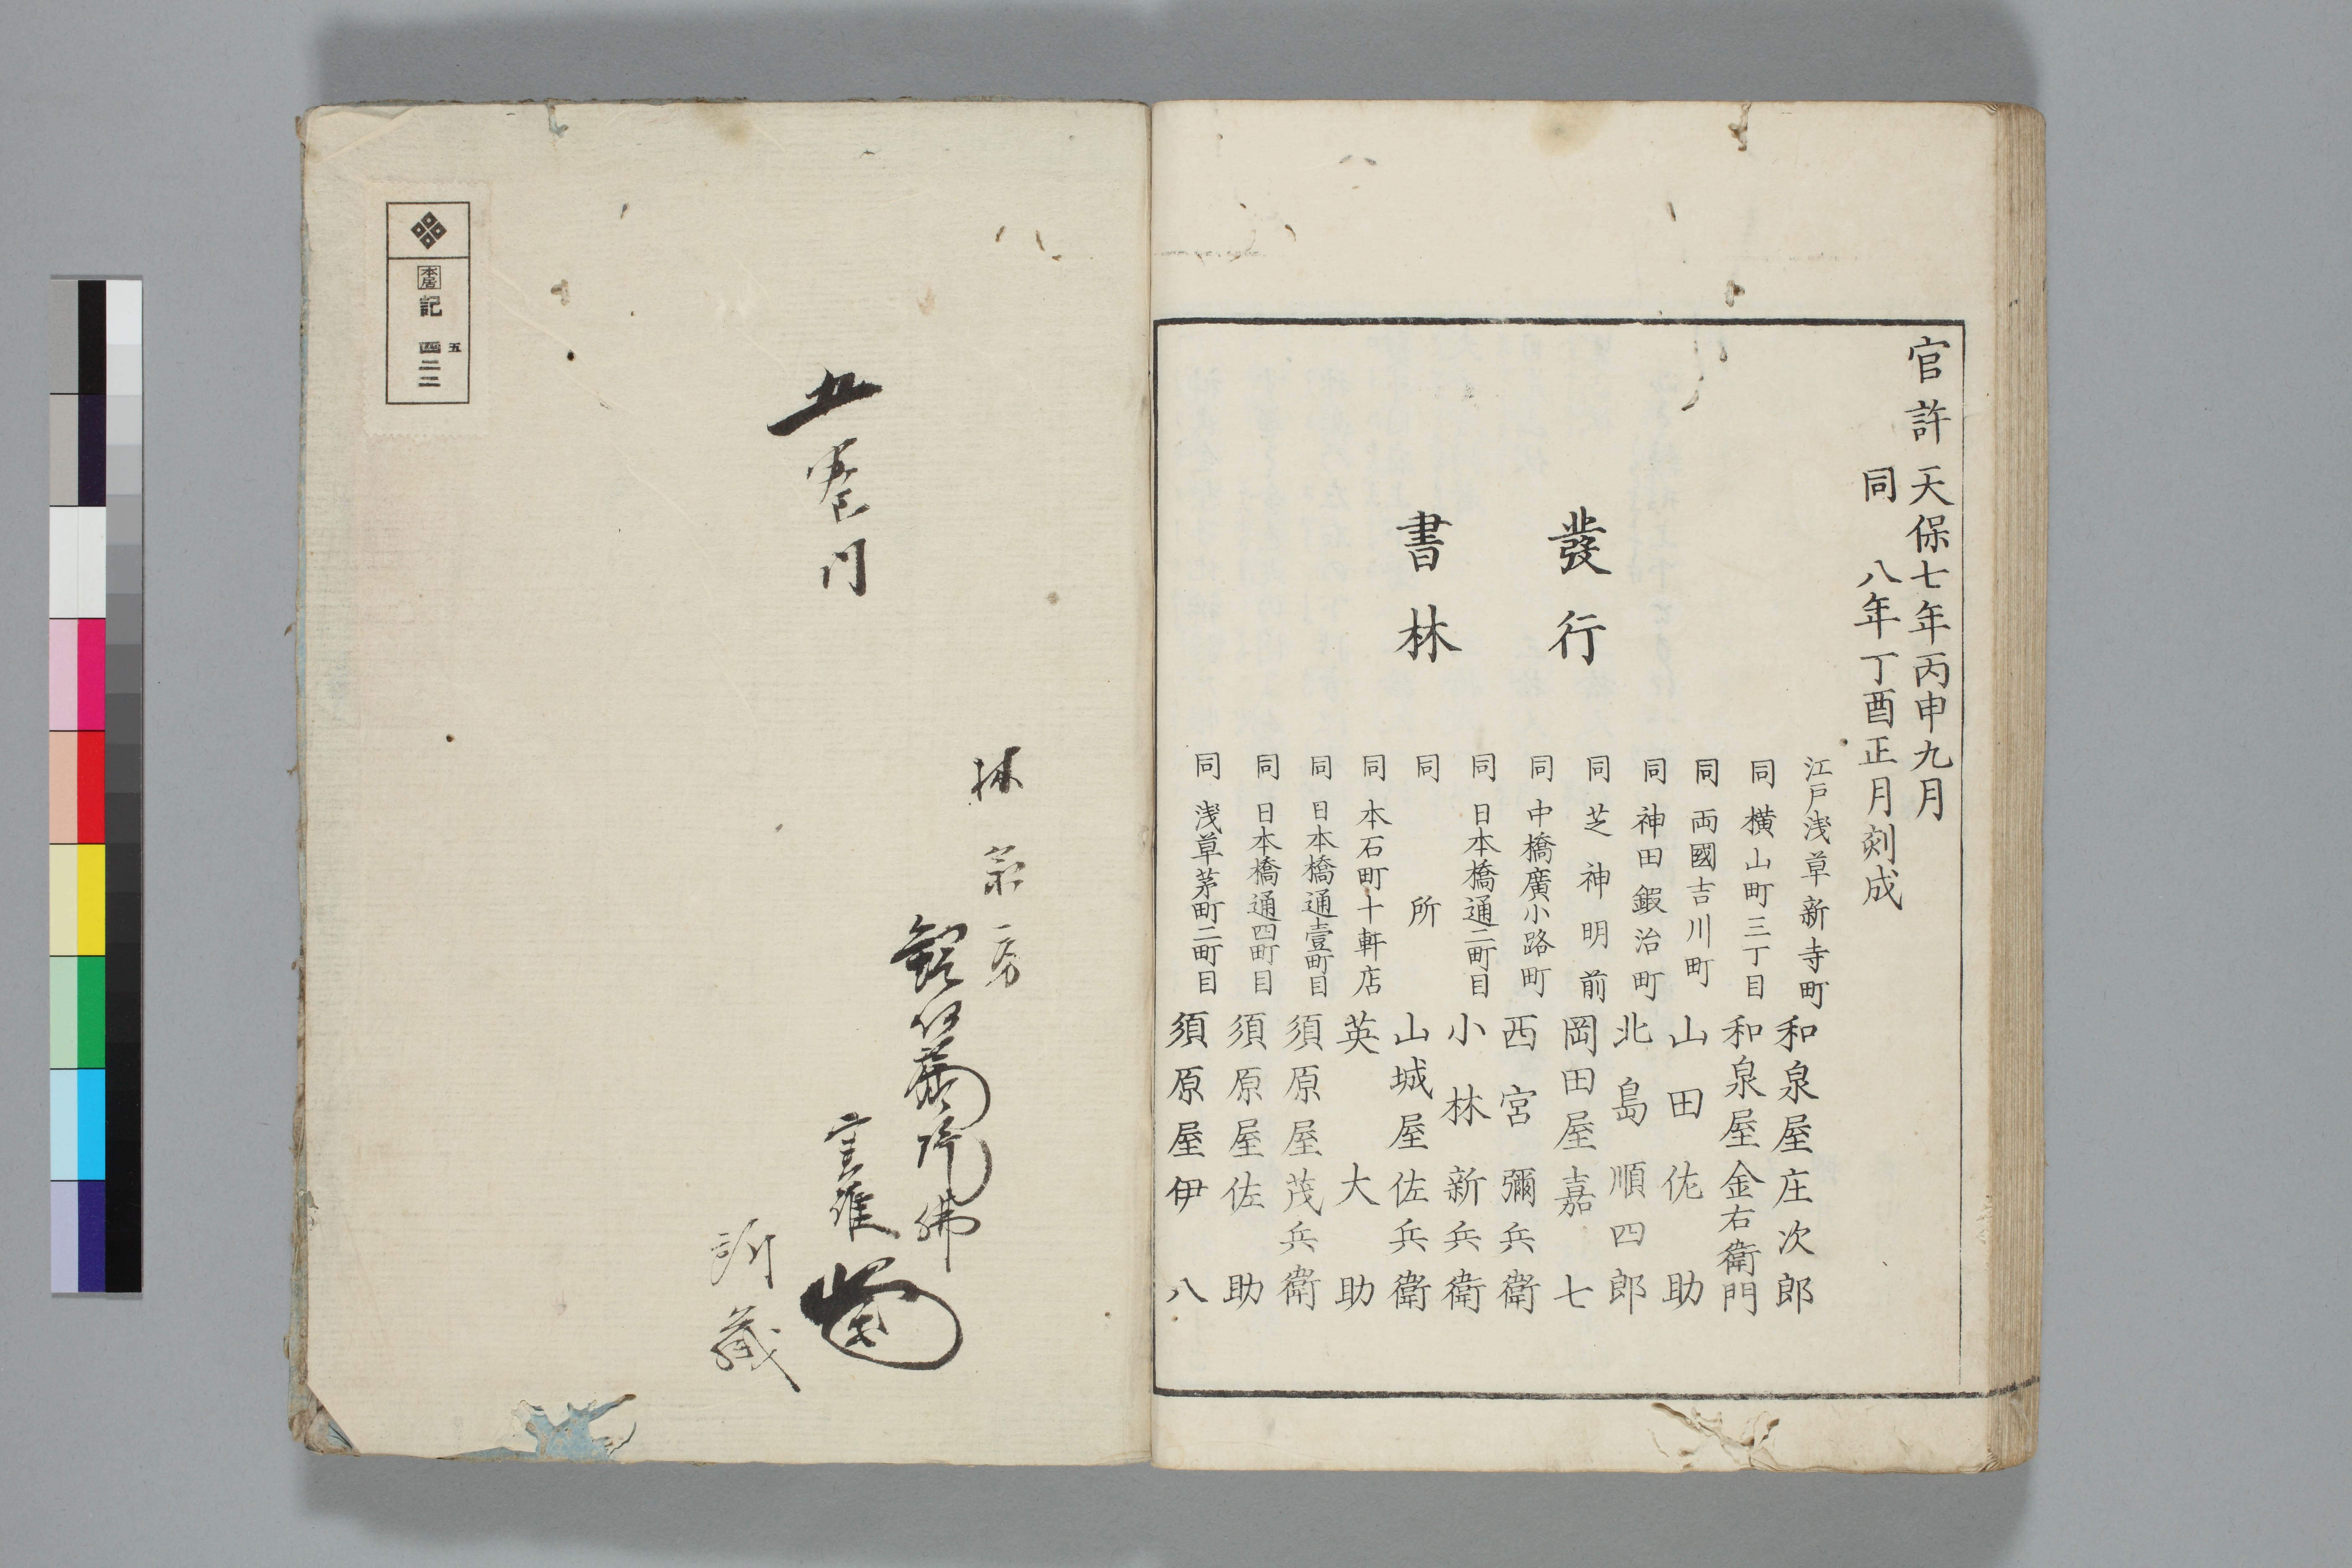 官許 天保七年丙申九月
同 八年丁酉正月刻成
發行
書林
江戸浅草新寺町 和泉屋庄次郎
同 横山町三丁目 和泉屋金右衛門
同 両國吉川町 山田佐助
同 神田鍜冶町 北島順四郎
同 芝神明前 岡田屋嘉七
同 中橋廣小路町 西宮彌兵衛
同 日本橋通二町目 小林新兵衛
同 所 山城屋佐兵衛
同 本石町十軒店 英大助
同 日本橋通壹町目 須原屋茂兵衛
同 日本橋通四町目 須原屋佐助
同 浅草茅町二町目 須原屋伊八
所藏
本居
記
五
四二二